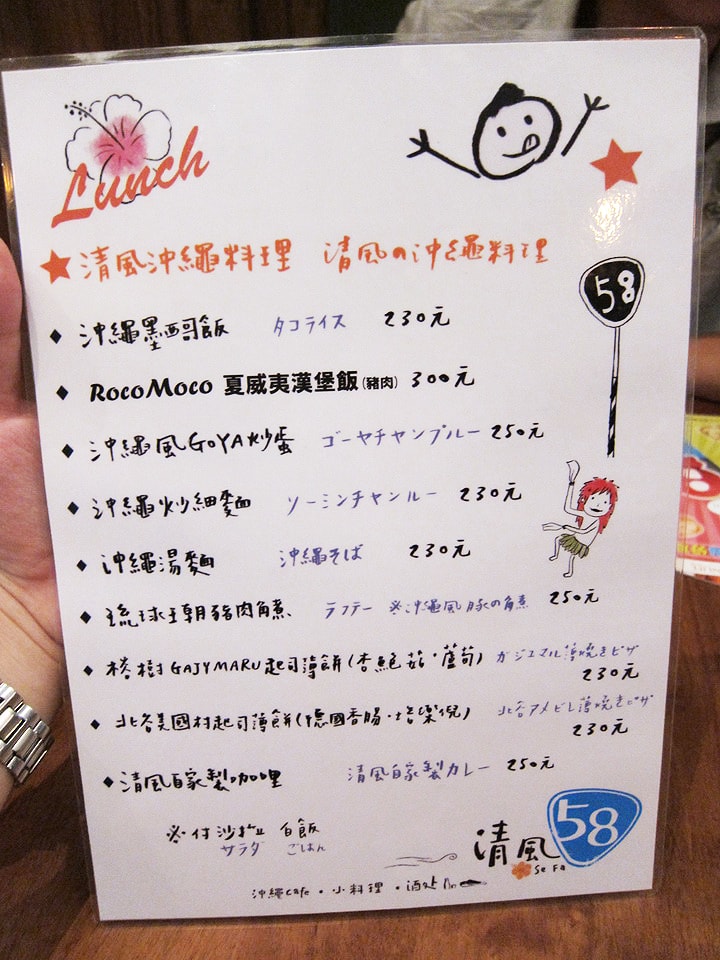 Lunch
清風沖繩料理 清風の沖縄料理
58
沖繩墨西哥飯 タコライス 230元
RocoMoco 夏威夷漢堡飯(豬肉) 300元
沖繩風GOYA炒蛋 ゴーヤチャンプルー 250元
沖繩炒細麵 ソーミンチャンルー 230元
沖繩湯麵 沖繩そば 230元
琉球王朝豬肉角煮 ラフテー ※沖繩風豚の角煮 250元
榕樹GAJYMARU起司薄餅(杏鮑菇·蘆筍) ガジュマル薄焼きピザ
230元
北谷美國村起司薄餅(德國香腸·培根) 北谷アメビレ薄焼きピザ
230元
清風自家製咖哩 清風自家製カレー 250元
※付沙拉 白飯
サラダ ごはん
清風 58
Se Fa
沖繩cafe·小料理·酒处